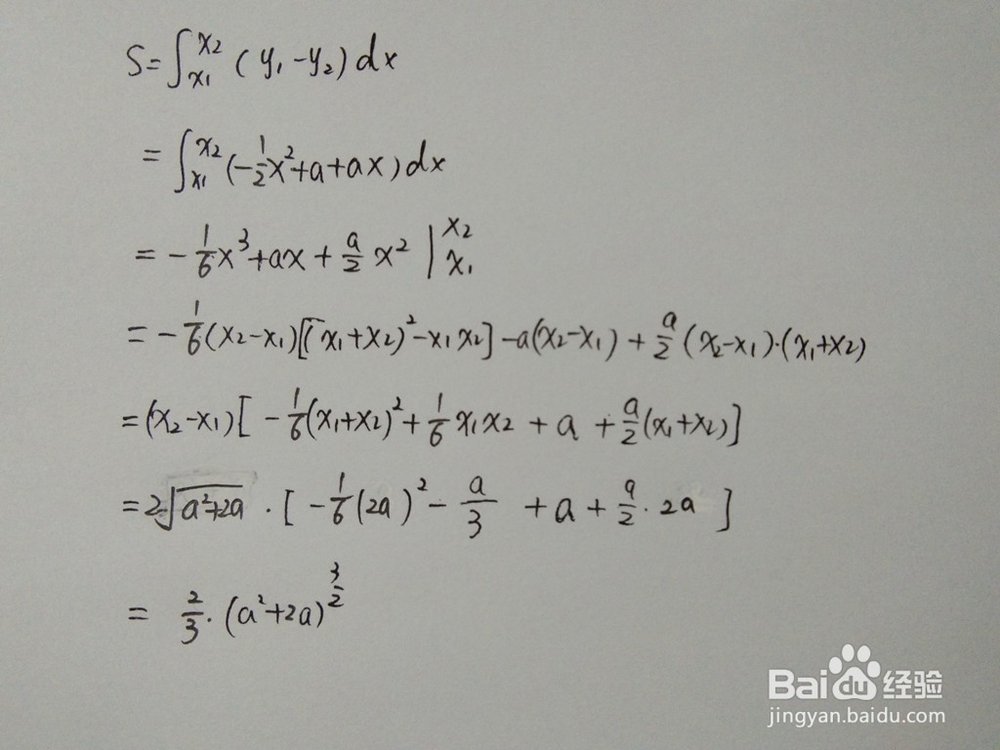 S=∫_{x₁}^{x₂} (y₁-y₂)dx
=∫_{x₁}^{x₂}(-1/2x²+a+ax)dx
=-1/6x³+ax+a/2x² |_{x₁}^{x₂}
=-1/6(x₂-x₁)[(x₁+x₂)²-x₁x₂]-a(x₂-x₁)+a/2(x₂-x₁)·(x₁+x₂)
=(x₂-x₁)[-1/6(x₁+x₂)²+1/6x₁x₂+a+a/2(x₁+x₂)]
=2√(a²+2a)·[-1/6(2a)²-a/3+a+a/2·2a]
=2/3·(a²+2a)^{3/2}
Baidu 经验
jingyan.baidu.com